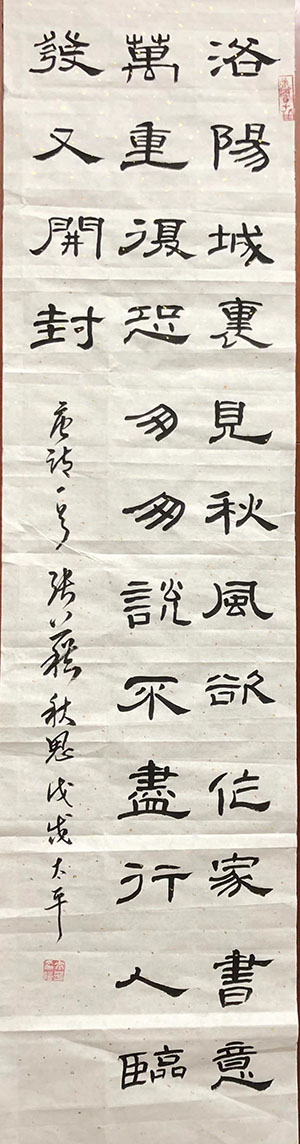 洛陽城裏見秋風欲作家書意
萬重復恐匆匆說不盡行人臨
發又開封
唐詩一首張籍秋思戊戌太平